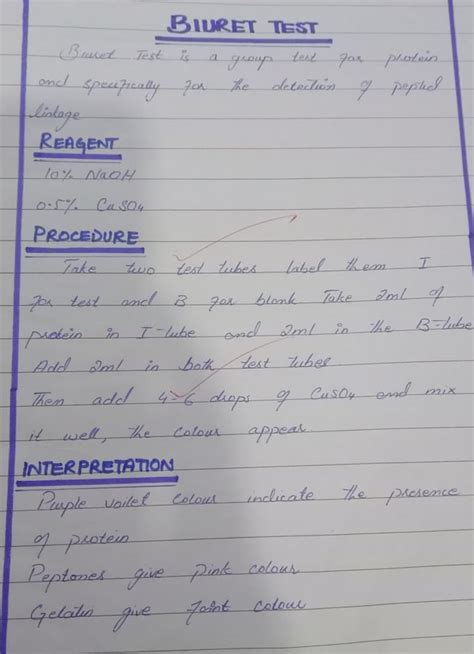 BIURET TEST
Biuret Test is a group test for protein
and specifically for the detection of peptied
linkage
REAGENT
10% NaOH
0.5% CuSO4
PROCEDURE
Take two test tubes label them I
for test and B for blank Take 2ml of
protein in I-tube and 2ml in the B-tube
Add 2ml in both test tubes
Then add 4-6 drops of CuSO4 and mix
it well, the colour appear
INTERPRETATION
Purple voilet colour indicate the presence
of protein
Peptones give pink colour
Gelatin give faint colour